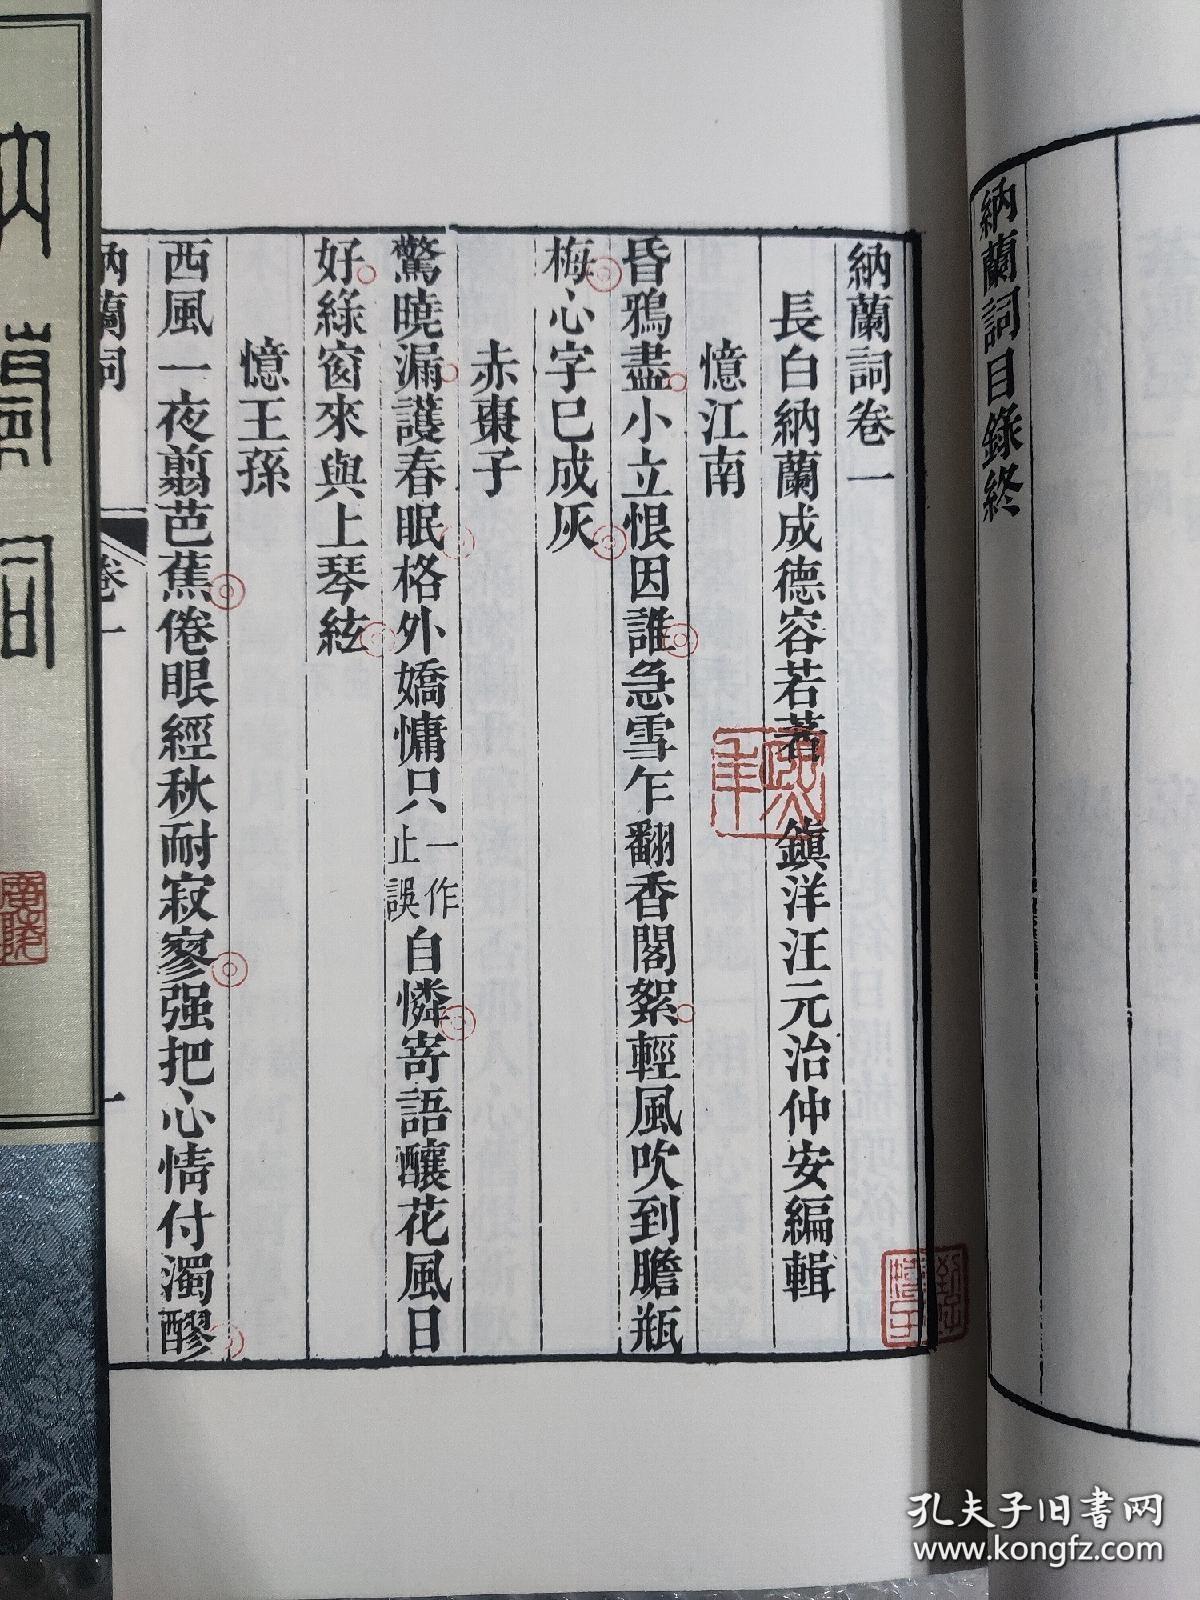 納蘭詞目錄終
納蘭詞卷一
長白納蘭成德容若著 鎮洋汪元治仲安編輯
憶江南
昏鴉盡小立恨因誰急雪乍翻香閣絮輕風吹到膽瓶
梅心字已成灰
赤棗子
驚曉漏護春眠格外嬌慵只一作止誤自憐寄語釀花風日
好綠窗來與上琴絃
憶王孫
西風一夜翦芭蕉倦眼經秋耐寂寥强把心情付濁醪
納蘭詞 卷一 一
納蘭詞
廣陵
孔夫子旧书网
www.kongfz.com